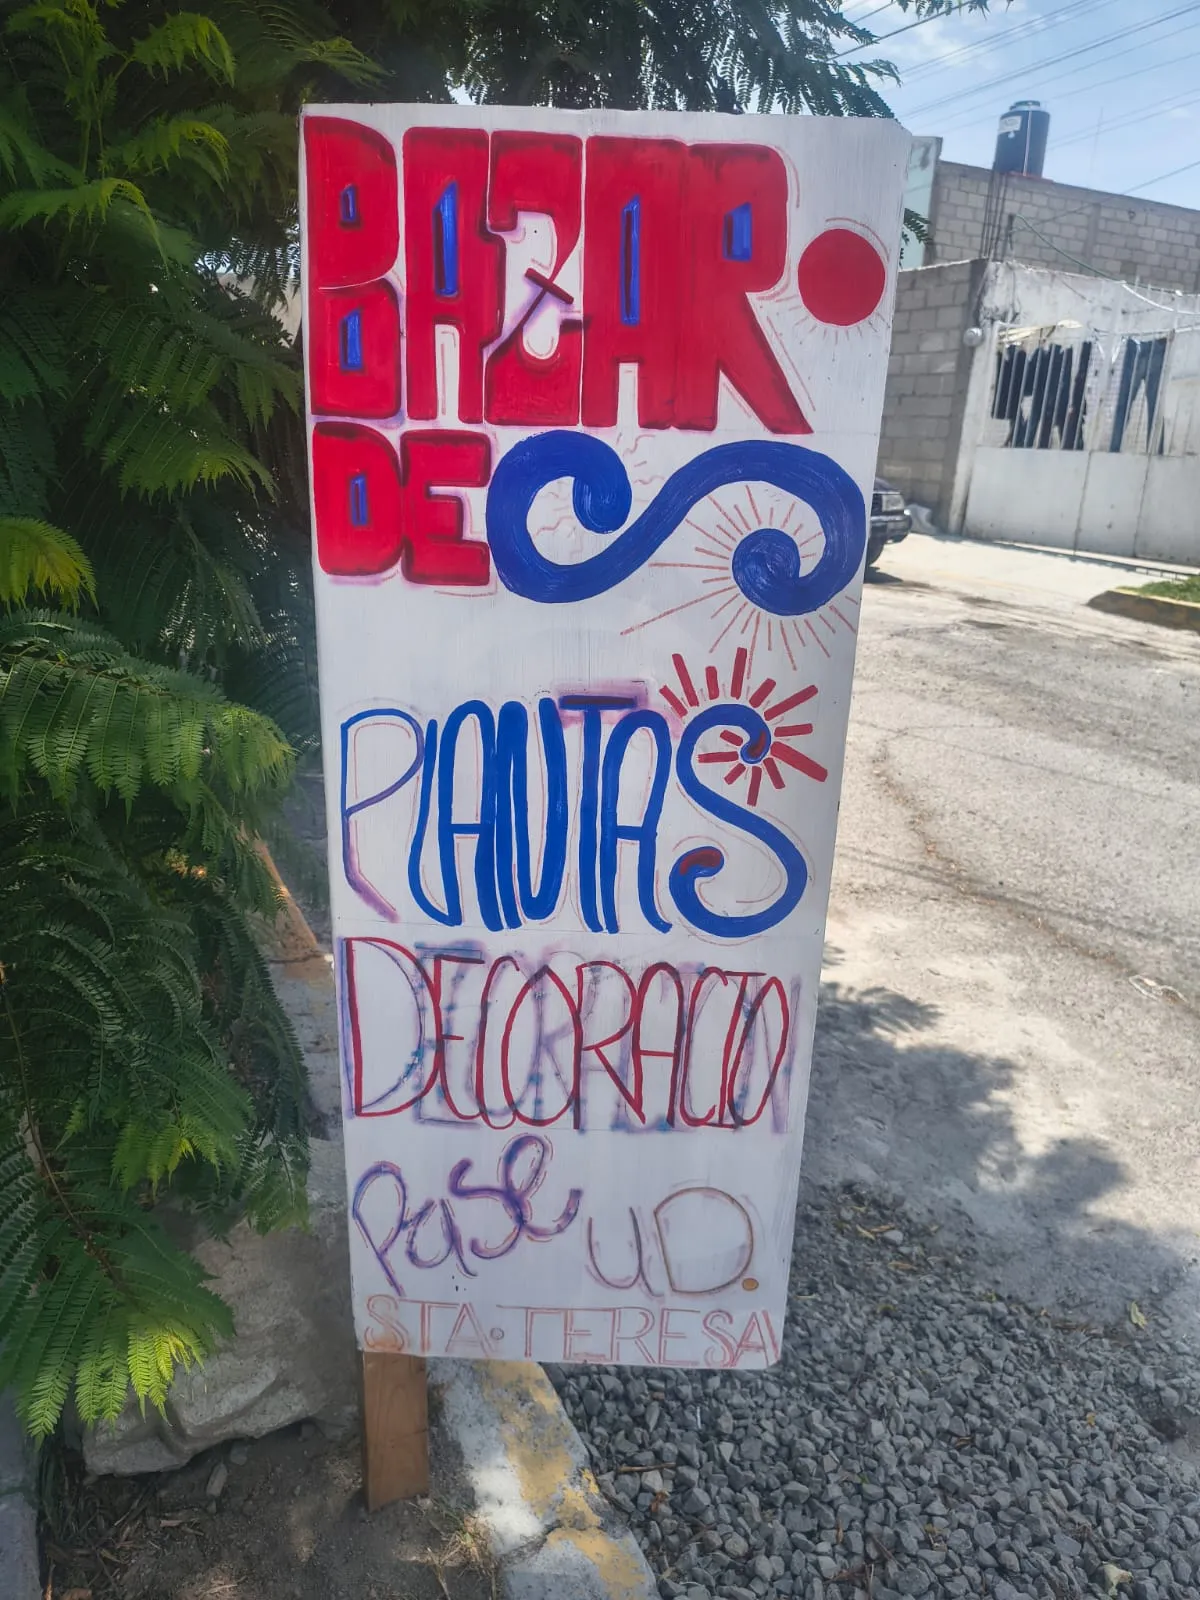 BAZAR
DE
PLANTAS
DECORACIO
Pase UD.
STA·TERESA